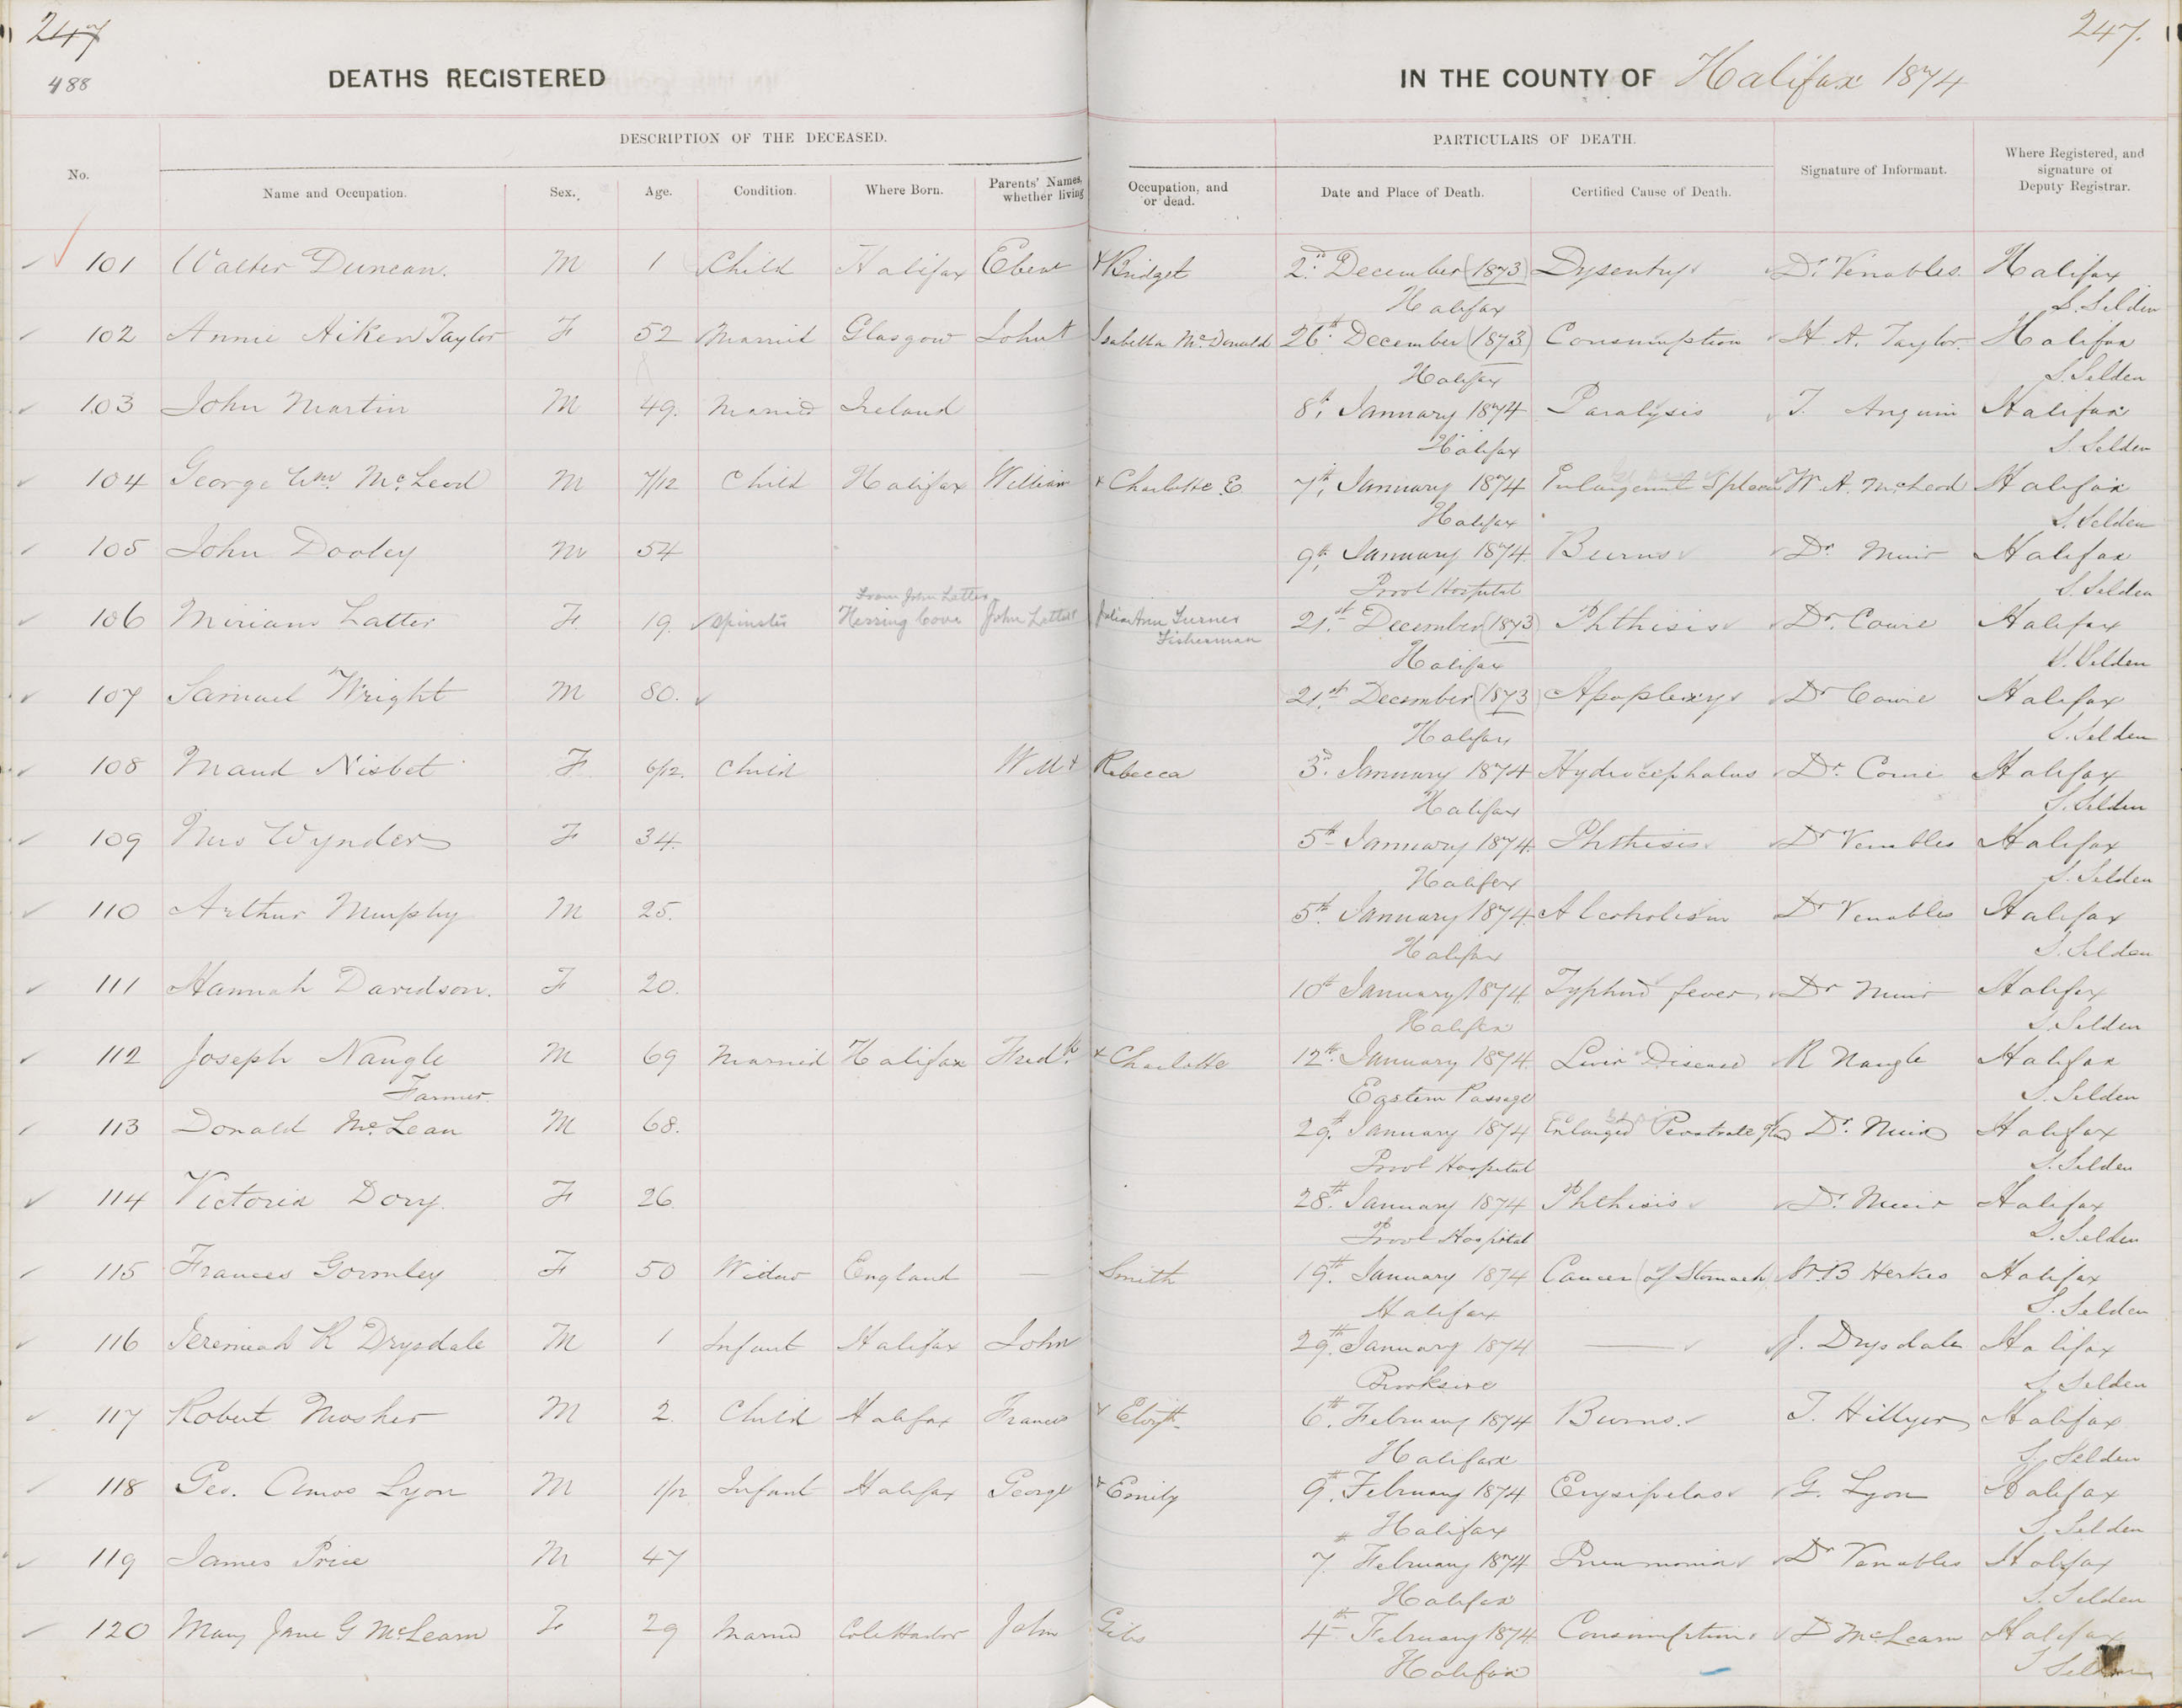 247 247.
488 DEATHS REGISTERED IN THE COUNTY OF Halifax 1874
DESCRIPTION OF THE DECEASED. PARTICULARS OF DEATH.
No. Name and Occupation. Sex. Age. Condition. Where Born. Parents' Names, whether living Occupation, and or dead. Date and Place of Death. Certified Cause of Death. Signature of Informant. Where Registered, and signature of Deputy Registrar.
101 Walter Duncan. M 1 Child Halifax Eben & Bridget 2nd December (1873) Dysentry Dr. Venables Halifax
Halifax S. Selden
102 Annie Aiken Taylor F 52 Married Glasgow John & Isabella McDonald 26th December (1873) Consumption H A. Taylor Halifax
Halifax S. Selden
103 John Martin M 49. Married Ireland 8th, January 1874 Paralysis T. Anguin Halifax
Halifax S. Selden
104 George Wm. McLeod M 7/12 Child Halifax William & Charlotte E 7th, January 1874 Enlargemt Spleen W. A. McLeod Halifax
Halifax S. Selden
105 John Dooley M 54 9th, January 1874. Burns Dr. Muir Halifax
Provl Hospital S. Selden
From John Latter
106 Miriam Latter F 19. Spinster Herring Cove John Latter Julia Ann Turner 21st December (1873) Phthisis Dr. Cowie Halifax
Fisherman
Halifax S. Selden
107 Samuel Wright M 80. 21st December (1873 Apoplexy Dr Cowie Halifax
Halifax S. Selden
108 Maud Nisbet F 6/12. Child Will & Rebecca 3d. January 1874 Hydrocephalus Dr. Cowie Halifax
Halifax S. Selden
109 Mrs Wynder F 34. 5th January 1874. Phthisis Dr Venables Halifax
Halifax S. Selden
110 Arthur Murphy M 25. 5th. January 1874. Alcoholism Dr Venables Halifax
Halifax S. Selden
111 Hannah Davidson. F 20. 10th January 1874 Typhoid fever Dr Muir Halifax
Halifax S. Selden
112 Joseph Nangle M 69 Married Halifax Fredk. & Charlotte 12th. January 1874. Liver Disease R Nangle Halifax
Farmer. Eastern Passage S. Selden
113 Donald McLean M 68. 29th. January 1874 Enlarged Prostrate gland Dr. Muir Halifax
Provl Hospital S. Selden
114 Victoria Dory. F 26. 28th. January 1874 Phthisis Dr. Muir Halifax
Provl Hospital S. Selden
115 Frances Gormley F 50 Widow England — Smith 19th. January 1874 Cancer (of Stomach) W. B Herkes Halifax
Halifax S. Selden
116 Jeremiah R Drysdale M 1 Infant Halifax John 29th. January 1874 — J. Drysdale Halifax
Brookside S. Selden
117 Robert Mosher M 2. Child Halifax Francis & Elizth. 6th. February 1874 Burns. T. Hillyer Halifax
Halifax S. Selden
118 Geo. Amos Lyon M 1/12 Infant Halifax George & Emily 9th. February 1874 Erysipelas G. Lyon Halifax
Halifax S. Selden
119 James Price M 47 7th. February 1874 Pneumonia Dr Venables Halifax
Halifax S. Selden
120 Mary Jane G McLearn F 29 Married Cole Harbor John Giles 4th February 1874 Consumption D McLearn Halifax
Halifax S Selden